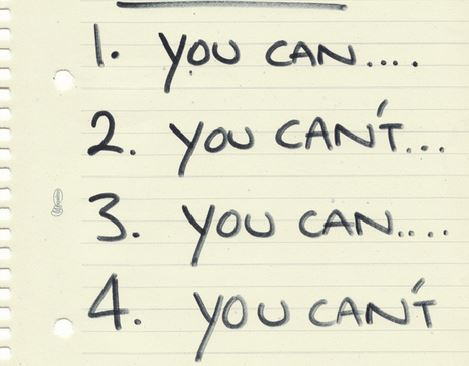 1. YOU CAN....
2. YOU CAN'T...
3. YOU CAN....
4. YOU CAN'T